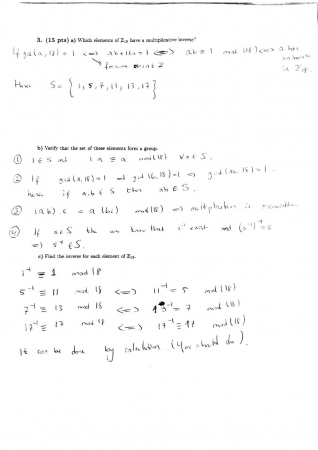 3. (15 pts) a) Which elements of Z₁₈ have a multiplicative inverse?
If gcd(a,18) = 1 <=> ab+18n = 1 <=> ab ≡ 1 mod (18) <=> a has
for some b in Z
in Z₁₈.
Hence S = { 1, 5, 7, 11, 13, 17 }
b) Verify that the set of these elements form a group.
① 1 ∈ S and 1 a ≡ a mod(18) ∀ a ∈ S.
② If gcd(a,18) = 1 and gcd(b,18) = 1 => gcd(ab,18) = 1.
hence if a,b ∈ S then ab ∈ S.
③ (ab).c = a(bc) mod(18) => multiplication is associative
④ If a ∈ S then we know that a⁻¹ exist and (a⁻¹)⁻¹ = a
=> a⁻¹ ∈ S.
c) Find the inverse for each element of Z₁₈.
1⁻¹ ≡ 1 mod 18
5⁻¹ ≡ 11 mod 18 <=> 11⁻¹ = 5 mod (18)
7⁻¹ ≡ 13 mod 18 <=> 13⁻¹ = 7 mod (18)
17⁻¹ ≡ 17 mod 18 <=> 17⁻¹ ≡ 17 mod (18)
It can be done by calculation (you should do).